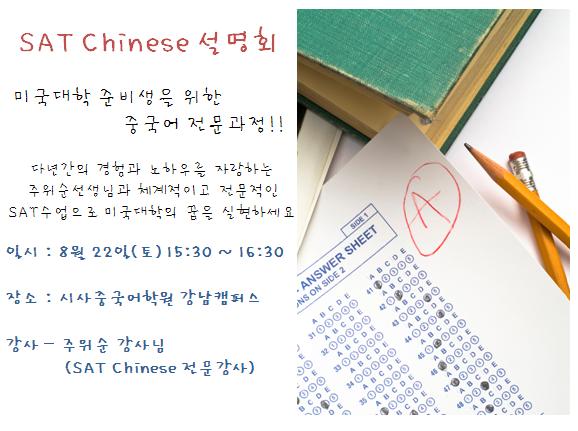 SAT Chinese 설명회
미국대학 준비생을 위한
중국어 전문과정!!
다년간의 경험과 노하우를 자랑하는
주위순선생님과 체계적이고 전문적인
SAT수업으로 미국대학의 꿈을 실현하세요
일시 : 8월 22일(토) 15:30 ~ 16:30
장소 : 시사중국어학원 강남캠퍼스
강사 - 주위순 강사님
(SAT Chinese 전문강사)
A
SIDE 1
ANSWER SHEET
ONS ON SIDE 2